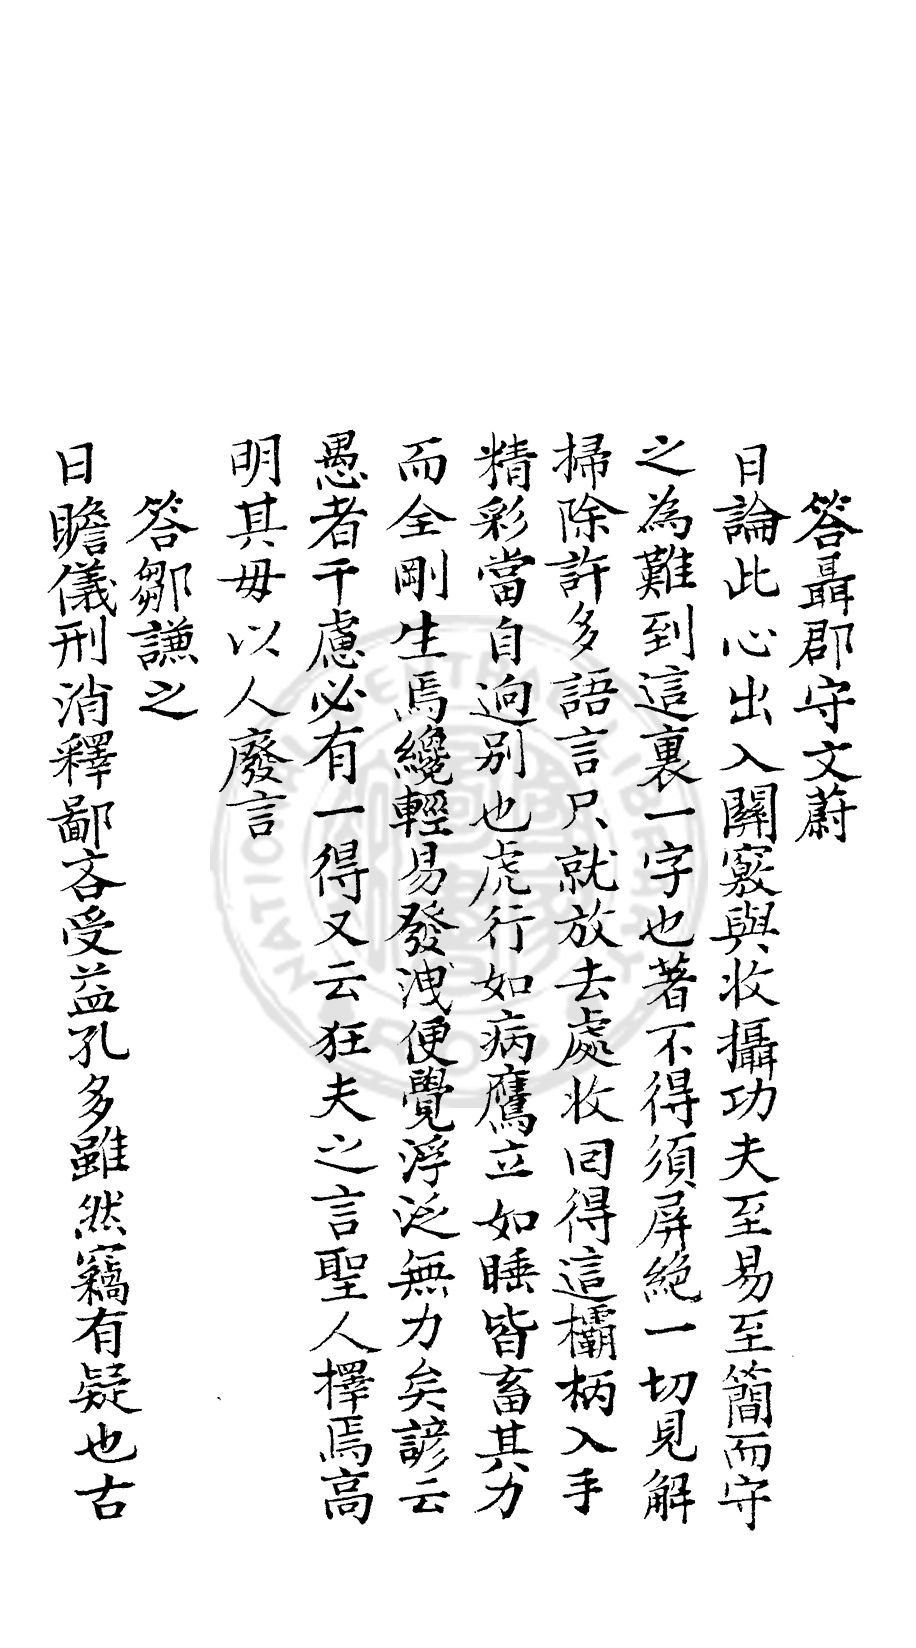 答聶郡守文蔚
日論此心出入關竅與收攝功夫至易至簡而守
之為難到這裏一字也著不得須屏絕一切見解
掃除許多語言只就放去處收回得這欛柄入手
精彩當自迥别也虎行如病鷹立如睡皆畜其力
而全剛生焉纔輕易發洩便覺浮泛無力矣諺云
愚者千慮必有一得又云狂夫之言聖人擇焉高
明其毋以人廢言
答鄒謙之
日瞻儀刑消釋鄙吝受益孔多雖然竊有疑也古